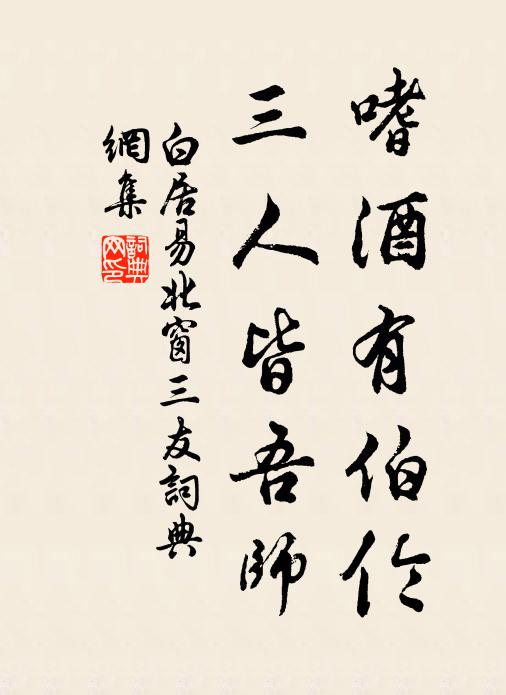 嗜酒有伯伶
三人皆吾師
白居易北窗三友詞典
網集
詞典
网印